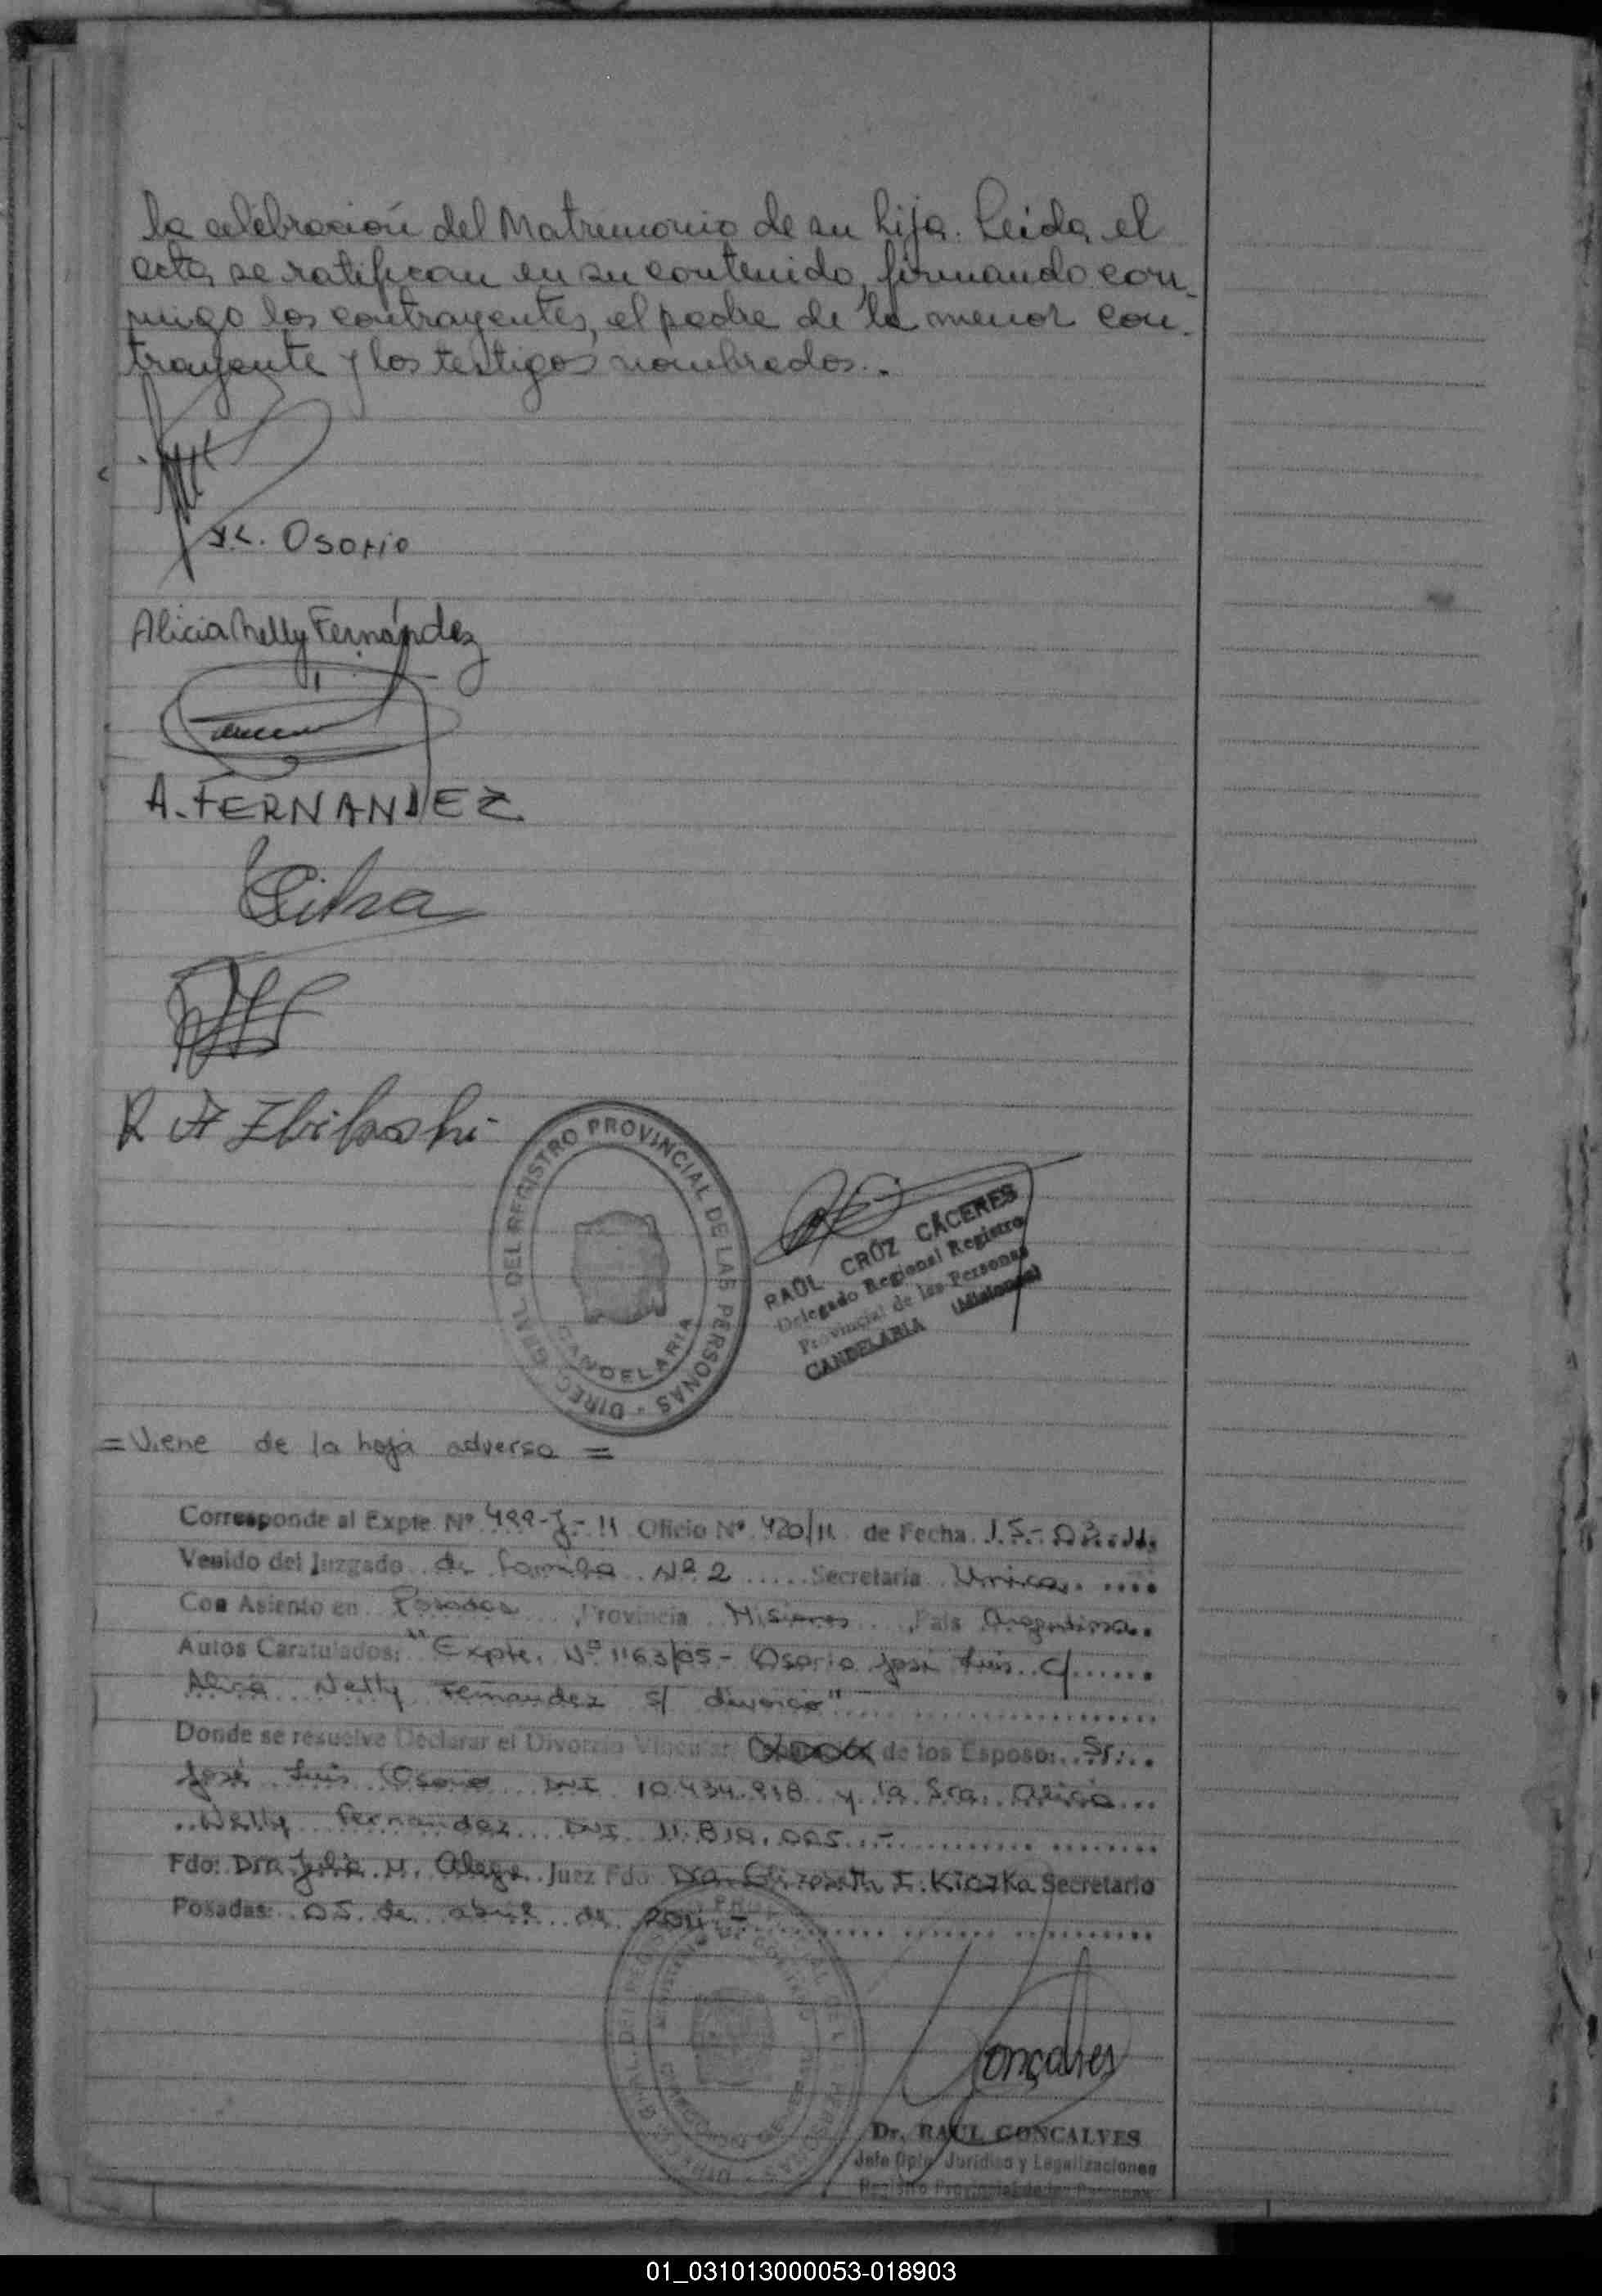 la celebración del Matrimonio de su hija. Leida el
acta, se ratifican en su contenido, firmando con-
migo los contrayentes, el padre de la menor con-
trayente y los testigos nombrados..
J.L. Osorio
Alicia Nelly Fernández
A. FERNANDEZ
DIREC. GRAL. DEL REGISTRO PROVINCIAL DE LAS PERSONAS -
CANDELARIA
RAÚL CRUZ CÁCERES
Delegado Regional Registro
Provincial de las Personas
CANDELARIA (Misiones)
= Viene de la hoja adversa =
Corresponde al Expte. Nº 499-J-11 Oficio Nº 420/11 de Fecha 15-03-11.
Venido del Juzgado de familia Nº 2 ..... Secretaria Unica.....
Con Asiento en Posadas ... Provincia Misiones ... País Argentina..
Autos Caratulados: "Expte. Nº 1163/05 - Osorio José Luis c/......
Alicia Nelly Fernandez s/ divorcio"
Donde se resuelve Declarar el Divorcio Vincular de los Esposo: Sr...
José Luis Osorio DNI 10.434.918 y la Sra. Alicia...
..Nelly Fernandez DNI 11.819.005.-
Fdo: Dra. Julia M. Alegre Juez Fdo Dra. Elizabeth I. Kiczka Secretario
Posadas: 05 de abril de 2011.-
Goncalves
Dr. RAUL GONCALVES
Jefe Dpto. Jurídico y Legalizaciones
Registro Provincial de las Personas
01_031013000053-018903